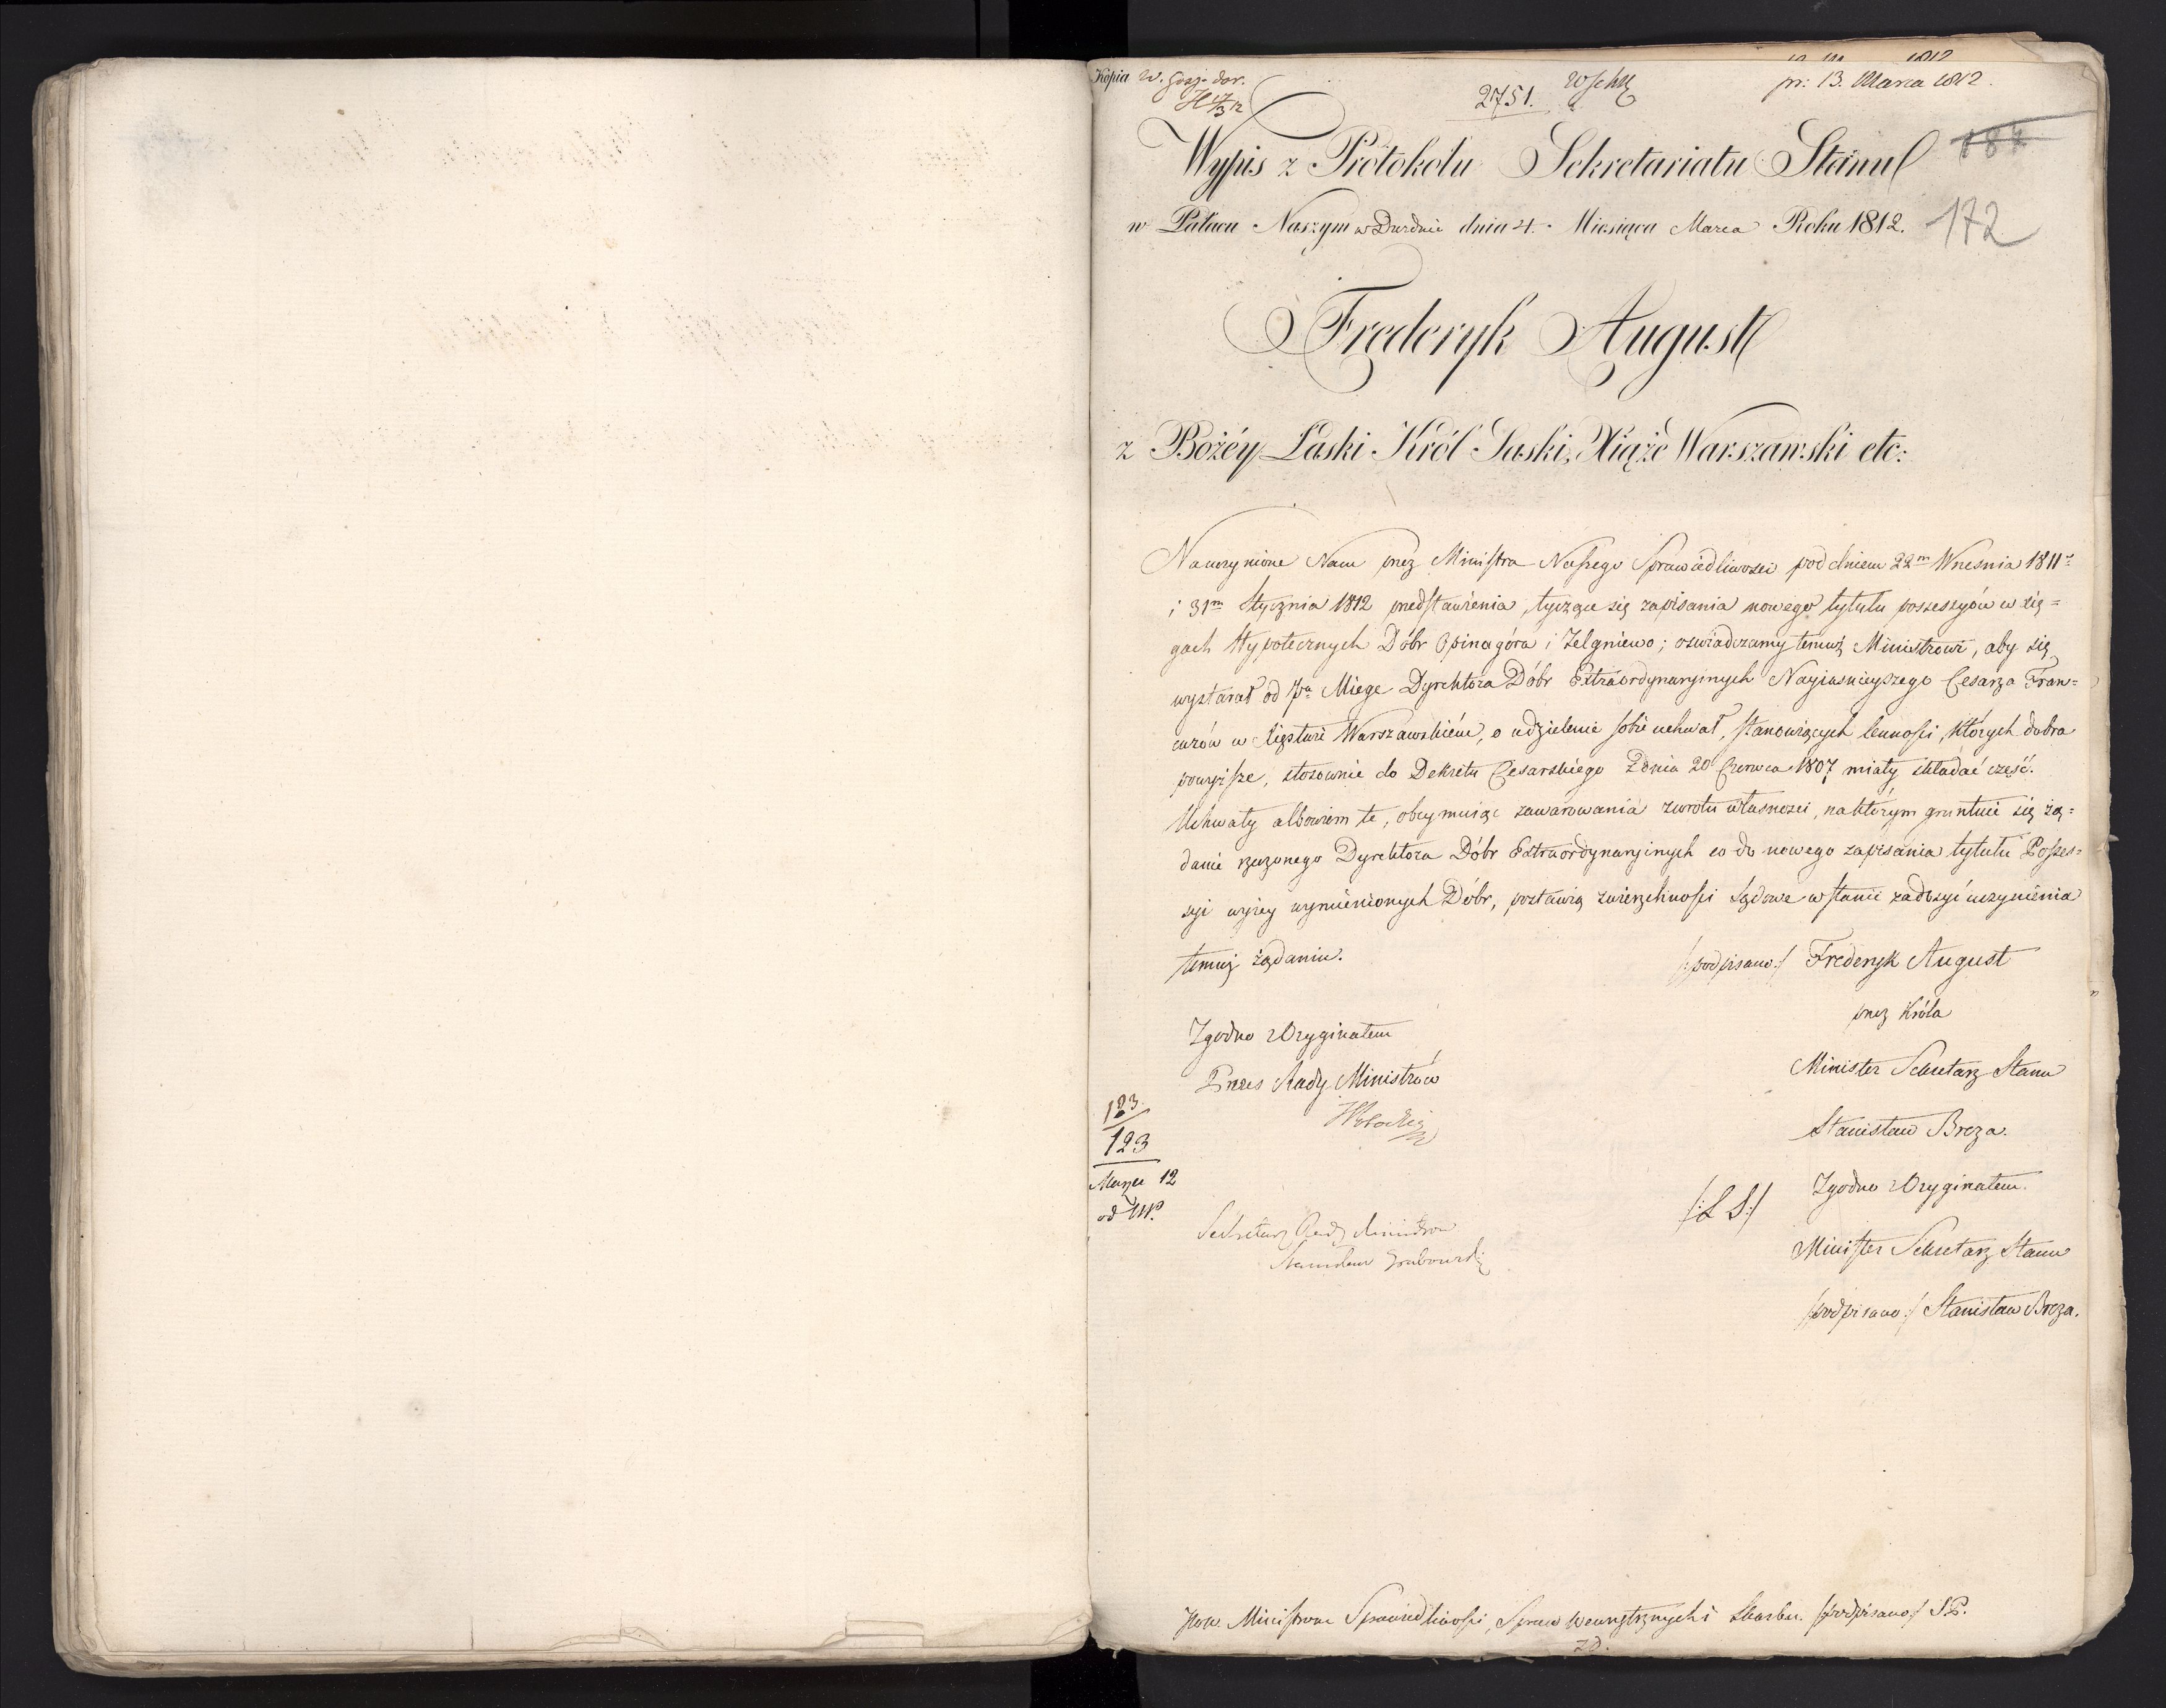 Kopia
2751.
pr: 13. Marca 1812.
187
Wypis z Protokołu Sekretariatu Stanu
w Pałacu Naszym w Dreźnie dnia 4. Miesiąca Marca Roku 1812.
172
Frederyk August
z Bożéy Łaski Król Saski, Xiąże Warszawski etc:
Naczynione Nam przez Ministra Naszego Sprawiedliwości pod dniem 22m Wrzesnia 1811
i 31m Stycznia 1812 przedstawienia, tyczące się zapisania nowego tytułu possessyów w xię=
gach Hypotecznych Dóbr Opinagóra i Zelgniewo; oswiadczamy temuż Ministrowi, aby się
wystarał od Pa Miege Dyrektora Dóbr Extraordynaryinych Nayiasnieyszego Cesarza Fran=
cuzów w Xięstwie Warszawskiém, o udzielenie sobie uchwał, stanowiących lenności, których dobra
powyższe, stosownie do Dekretu Cesarskiego z dnia 30 Czerwca 1807 miały składać część.
Uchwały albowiem te, obeymuiąc zawarowania zwrotu własnosci, na którym gruntuie się żą=
danie rzeczonego Dyrektora Dóbr Extraordynaryinych co do nowego zapisania tytułu Posses=
syi wyżey wymienionych Dóbr, postawią zwierzchności Sądowe w stanie zadosyć uczynienia
temuż żądaniu.
/:podpisano:/ Frederyk August
przez Króla
Minister Sekretarz Stanu
Stanisław Breza.
Zgodno z Oryginałem
Prezes Rady Ministrów
123
Marca 12
/:L S:/
Zgodno z Oryginałem.
Minister Sekretarz Stanu
/:podpisano:/ Stanisław Breza.
Sekretarz Rady Ministrów
Stanisław Grabowski
Ministrom Sprawiedliwości, Spraw Wewnętrznych i Skarbu. /:podpisano:/ S.B.